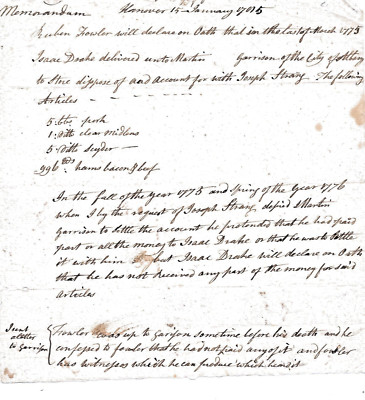 Memorandum Hanover 15 January 17815
Reuben Fowler will declare on Oath that in the last of March 1775
Isaac Drake delivered unto Martin Garrison of the City of
to Store dispose of and Account for with Joseph Strang The following
Articles
5 pork
1 ditto clear midlens
5 ditto seyder
996 hams bacon & beef
In the fall of the year 1775 and Spring of the Year 1776
when I by the request of Joseph Strang desired Martin
Garrison to Settle the account he pretended that he had paid
part or all the money to Isaac Drake or that he was to Settle
it with him but Isaac Drake will declare on Oath
that he has not Received any part of the money for said
articles
I sent
a letter
to Garrison
Fowler was up to garison sometime before his death and he
confessed to fowler that he had not paid any of it and fowler
has witnesses which he can produce which heard it